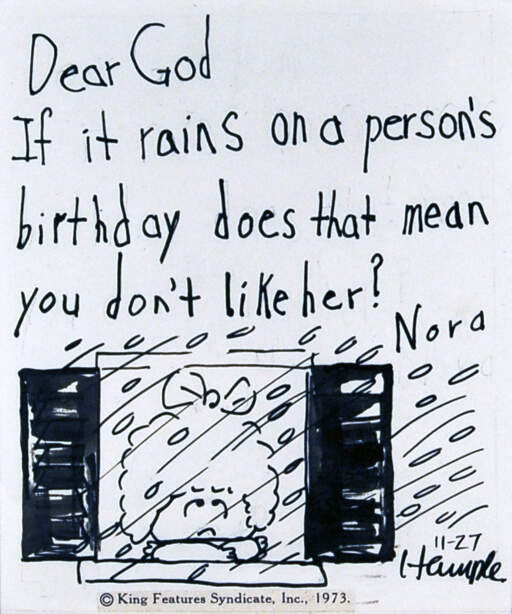 Dear God
If it rains on a person's
birthday does that mean
you don't like her?
Nora
11-27
Hample
© King Features Syndicate, Inc., 1973.